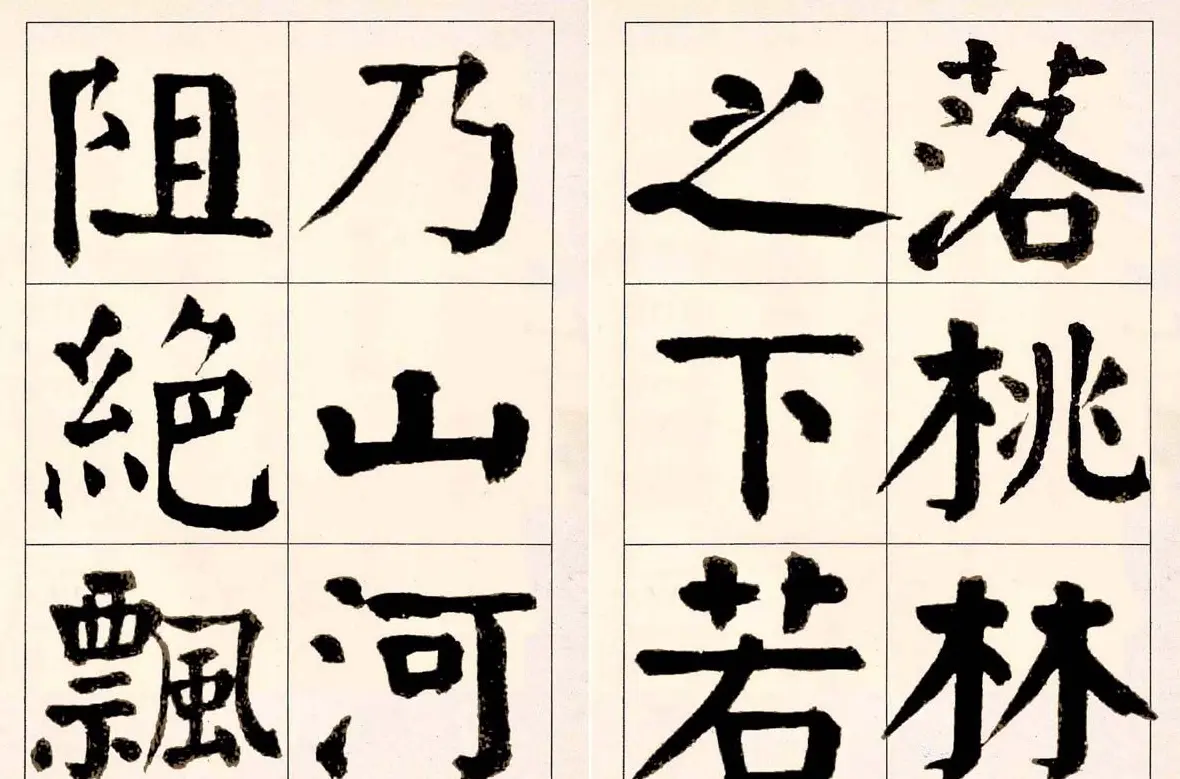 落桃林
之下若
乃山河
阻絕飄